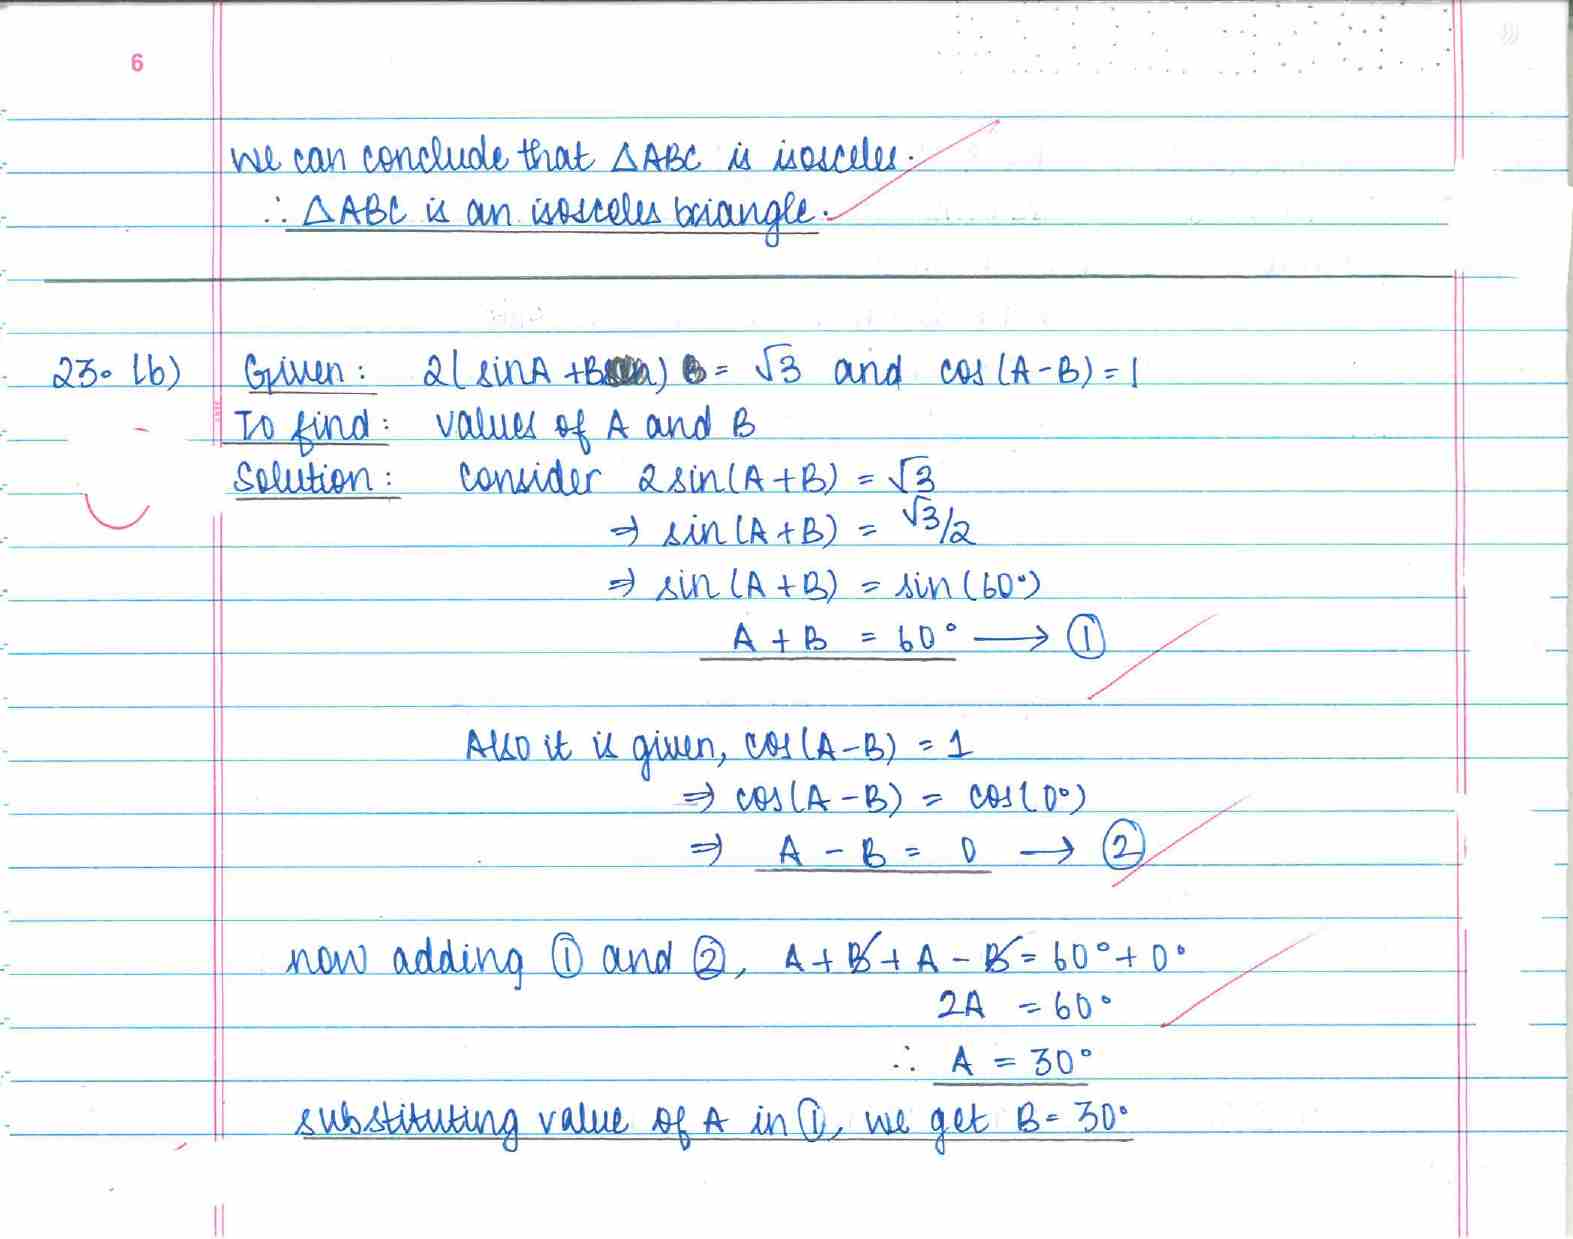 6
we can conclude that △ABC is isosceles.
∴ △ABC is an isosceles triangle.
23. (b) Given: 2(sinA + B) = √3 and cos(A-B) = 1
To find: values of A and B
Solution: consider 2sin(A+B) = √3
⇒ sin(A+B) = √3/2
⇒ sin(A+B) = sin(60°)
A + B = 60° → ①
Also it is given, cos(A-B) = 1
⇒ cos(A-B) = cos(0°)
⇒ A - B = 0 → ②
now adding ① and ②, A + B + A - B = 60° + 0°
2A = 60°
∴ A = 30°
substituting value of A in ①, we get B = 30°